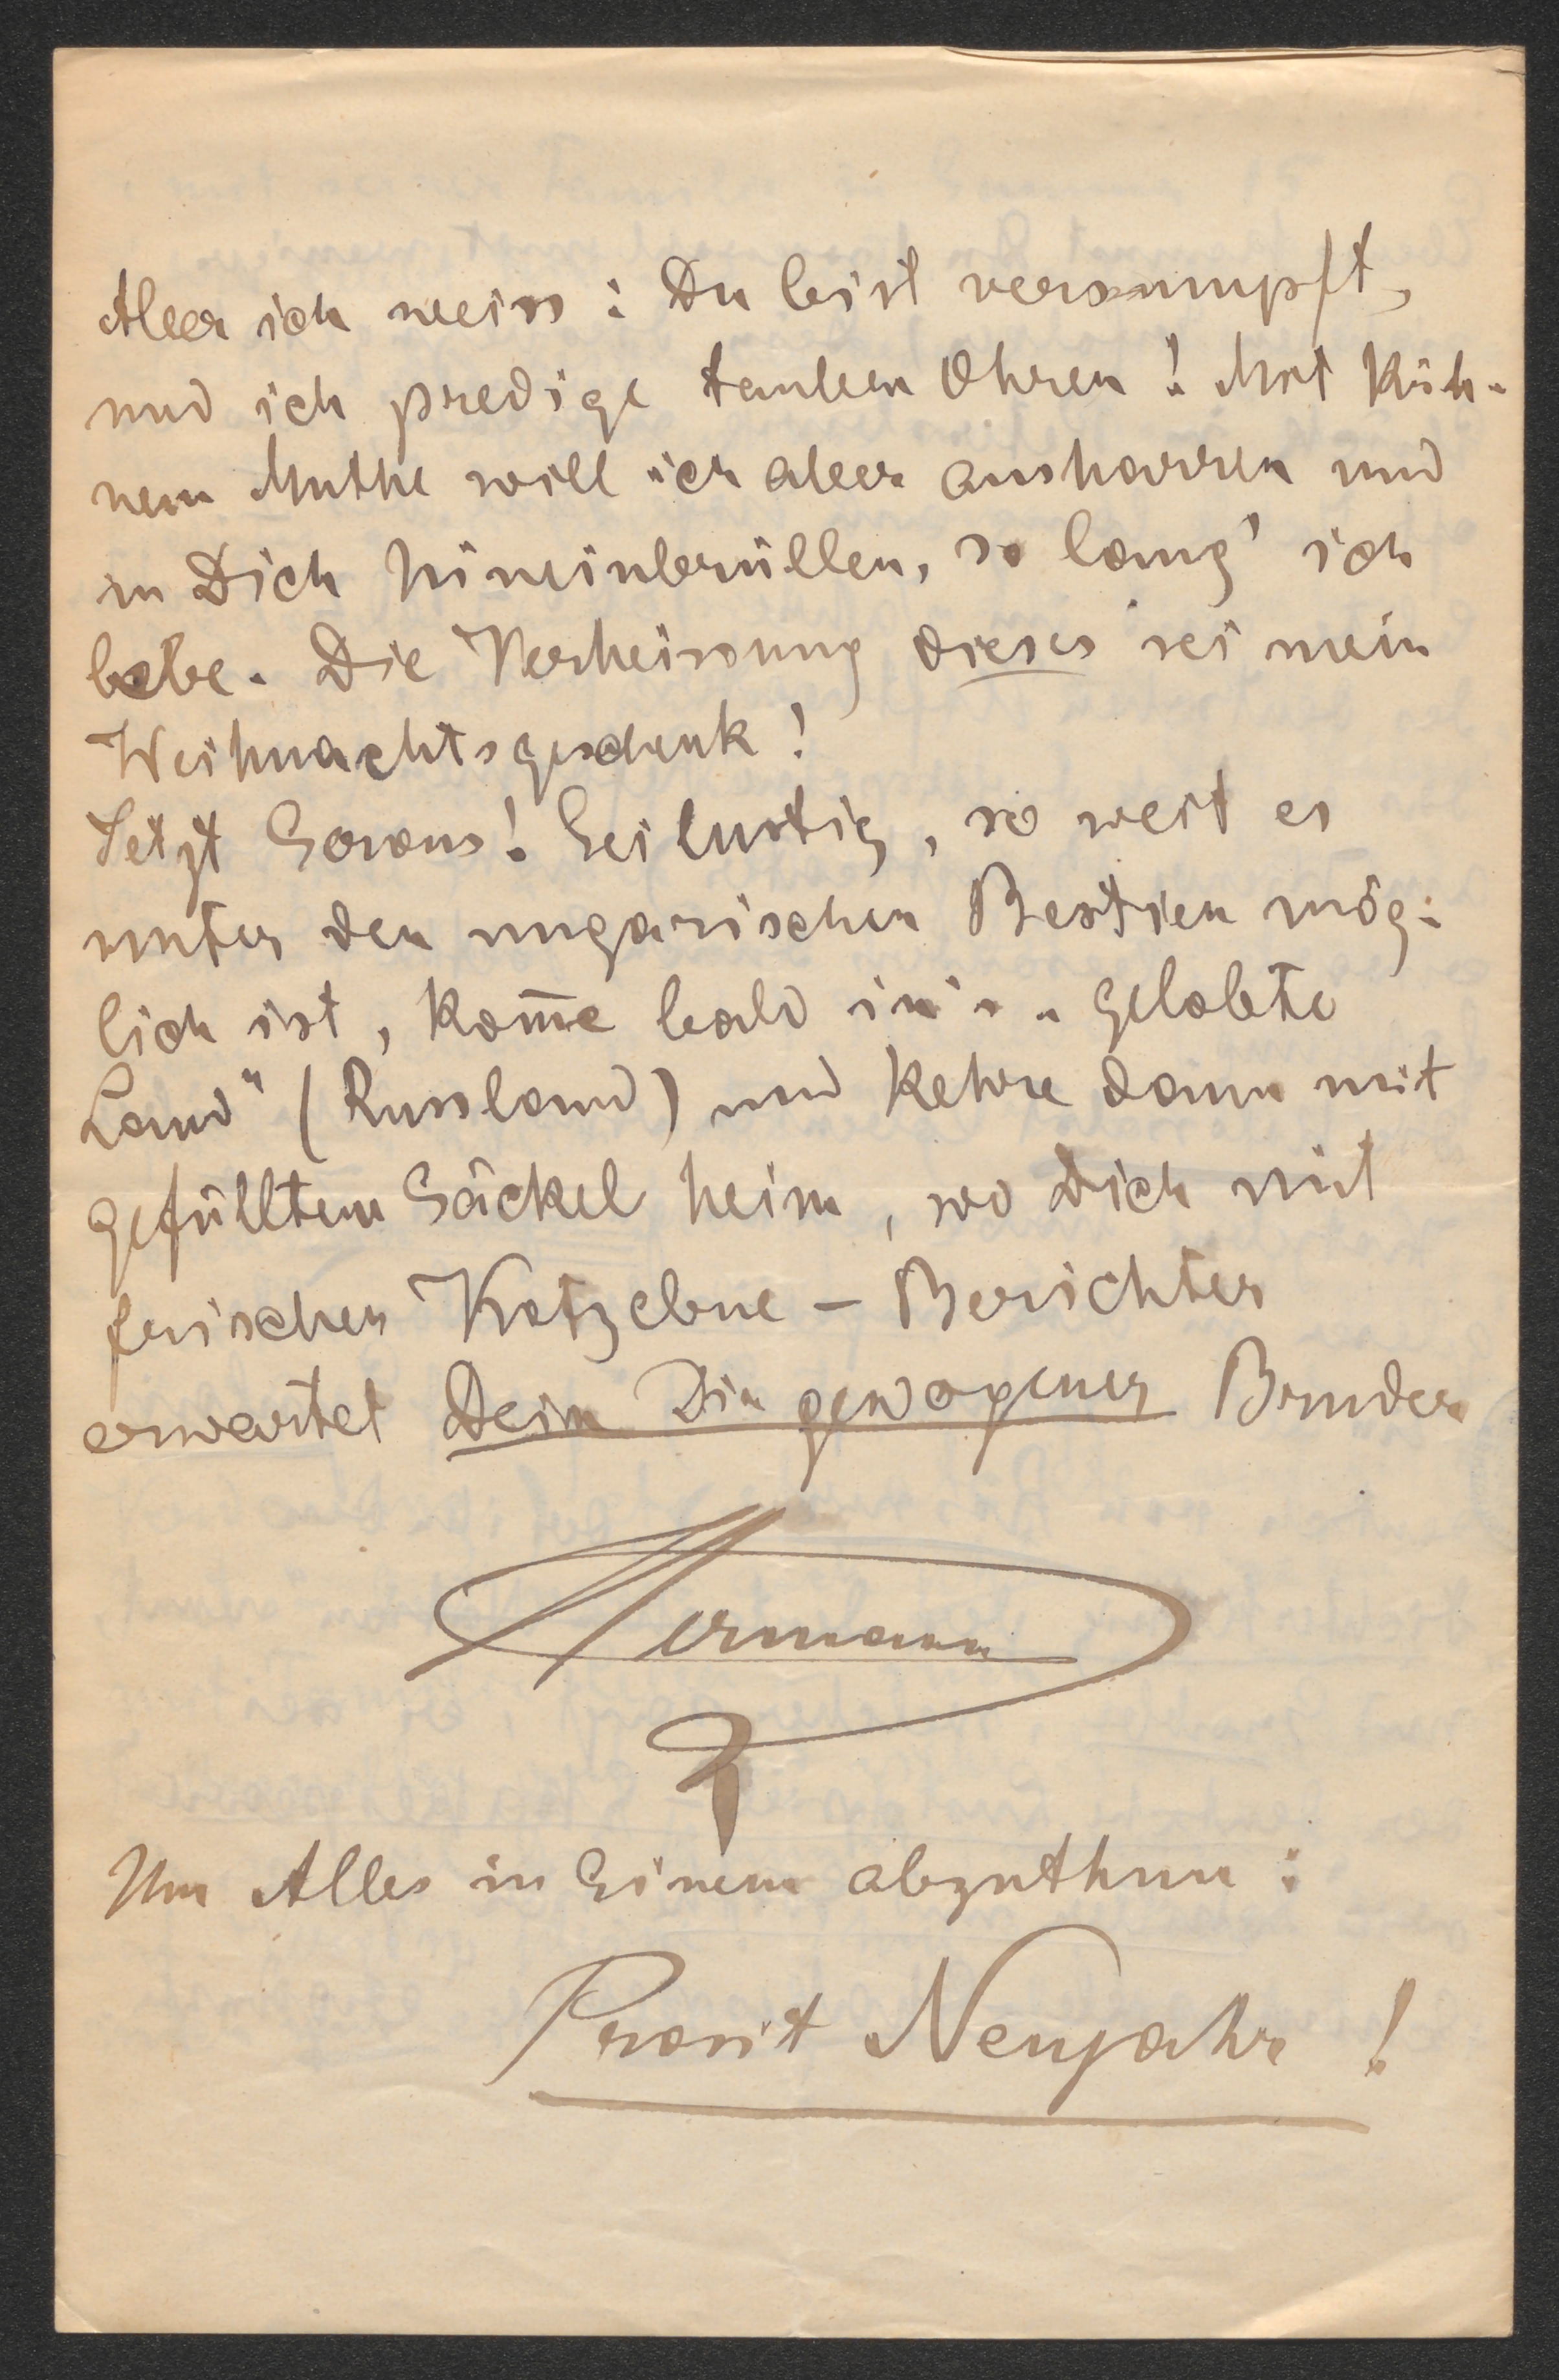 Aber ich weiss: Du bist versumpft,
und ich predige tauben Ohren! Mit küh-
nem Muthe will ich aber ausharren und
in Dich hineinbrüllen, so lang' ich
lebe. Die Verheissung dieses sei mein
Weihnachtsgeschenk!
Jetzt Servus! Sei lustig, so weit es
unter den ungarischen Bestien mög-
lich ist, kom̅e bald in's „gelobte
Land" (Russland) und kehre dann mit
gefülltem Säckel heim, wo Dich mit
frischen Kotzebue-Berichten
erwartet Dein Dir gewogener Bruder
Hermann
Um Alles in Einem abzuthun:
Prosit Neujahr!